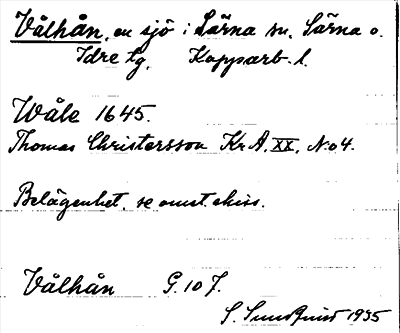 Vålhån, en sjö i Särna sn, Särna o.
Idre tg, Kopparb. l.
Wåle 1645.
Thomas Christersson Kr A, XX, No 4.
Belägenhet, se omst. skiss.
Vålhån G. 10 f.
S. Sundquist 1935